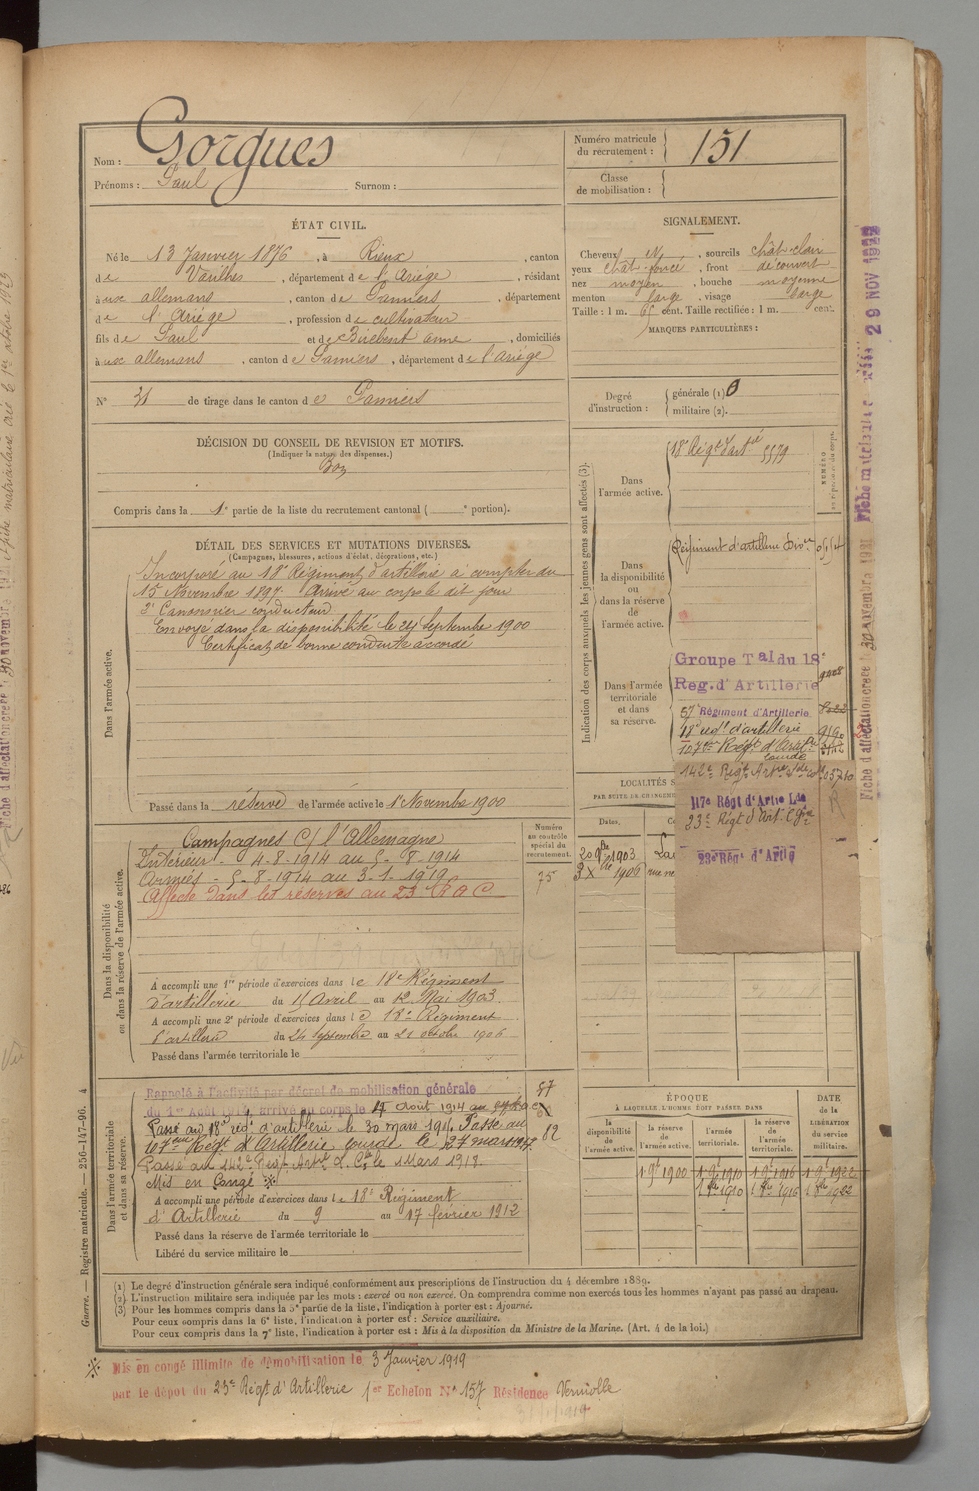 Nom : Gorgues
Prénoms : Paul Surnom :
Numéro matricule du recrutement : 151
Classe de mobilisation :
ÉTAT CIVIL.
Né le 13 Janvier 1876, à Rieux, canton
de Varilhes, département de l'Ariège, résidant
à aux allemans, canton de Pamiers, département
de l'Ariège, profession de cultivateur
fils de Paul et de Birebent anne, domiciliés
à aux allemans, canton de Pamiers, département de l'ariège
N° 31 de tirage dans le canton de Pamiers
SIGNALEMENT.
Cheveux et, sourcils chât-clair
yeux chât-foncé, front découvert
nez moyen, bouche moyenne
menton large, visage large
Taille : 1 m. 65 cent. Taille rectifiée : 1 m. cent.
MARQUES PARTICULIÈRES :
Degré d'instruction : générale (1) 0
militaire (2).
DÉCISION DU CONSEIL DE REVISION ET MOTIFS.
(Indiquer la nature des dispenses.)
Bon
Compris dans la 1e partie de la liste du recrutement cantonal ( e portion).
DÉTAIL DES SERVICES ET MUTATIONS DIVERSES.
(Campagnes, blessures, actions d'éclat, décorations, etc.)
Dans l'armée active.
Incorporé au 18e Régiment d'artillerie à compter du
15 Novembre 1897. Arrivé au corps le dit jour
2e Canonnier conducteur
Envoyé dans la disponibilité le 24 Septembre 1900
Certificat de bonne conduite accordé
Passé dans la réserve de l'armée active le 1er Novembre 1900
Indication des corps auxquels les jeunes gens sont affectés (3).
Dans l'armée active.
18e Régt d'artie 5579
Dans la disponibilité ou dans la réserve de l'armée active.
Régiment d'artillerie Divre
Dans l'armée territoriale et dans sa réserve.
Groupe Tal du 18e
Reg. d'Artillerie
57e Régiment d'Artillerie
18e régt d'artillerie
107ème Régt d'Artie
lourde
142e Régt Artie
117e Régt d'Artie Lde
23e Régt d'Art. Cgne
23e Régt d'Artie
LOCALITÉS S
PAR SUITE DE CHANGEMEN
Dates.
1903
1906
Dans la disponibilité ou dans la réserve de l'armée active.
Numéro au contrôle spécial du recrutement.
75
Campagnes C/ l'Allemagne
Intérieur - 4-8-1914 au 5-8-1914
Armées - 5-8-1914 au 3-1-1919
Affecté dans les réserves au 23e R A C
A accompli une 1re période d'exercices dans le 18e Régiment
d'artillerie du 15 Avril au 12 Mai 1903.
A accompli une 2e période d'exercices dans le 18e Régiment
d'artillerie du 24 septembre au 21 octobre 1906
Passé dans l'armée territoriale le
Dans l'armée territoriale et dans sa réserve.
Rappelé à l'activité par décret de mobilisation générale
du 1er Août 1914, arrivé au corps le 4 Août 1914
Passé au 18e régt d'artillerie le 30 mars 191. Passé au
107eme Régt d'Artillerie lourde le 27 mars 1917.
Passé au 142e Régt Artie L. Cie le 1 Mars 1918.
Mis en Congé ※
A accompli une période d'exercices dans le 18e Régiment
d'Artillerie du 9 au 17 février 1912
Passé dans la réserve de l'armée territoriale le
Libéré du service militaire le
ÉPOQUE
À LAQUELLE L'HOMME DOIT PASSER DANS
la disponibilité de l'armée active.
la réserve de l'armée active.
l'armée territoriale.
la réserve de l'armée territoriale.
DATE de la LIBÉRATION du service militaire.
1 9bre 1900 1 9bre 1910 1 9bre 1916 1 9bre 1922
1 8bre 1910 1 8bre 1916 1 8bre 1922
(1) Le degré d'instruction générale sera indiqué conformément aux prescriptions de l'instruction du 4 décembre 1889.
(2) L'instruction militaire sera indiquée par les mots : exercé ou non exercé. On comprendra comme non exercés tous les hommes n'ayant pas passé au drapeau.
(3) Pour les hommes compris dans la 5e partie de la liste, l'indication à porter est : Ajourné.
Pour ceux compris dans la 6e liste, l'indication à porter est : Service auxiliaire.
Pour ceux compris dans la 7e liste, l'indication à porter est : Mis à la disposition du Ministre de la Marine. (Art. 4 de la loi.)
※ Mis en congé illimité de démobilisation le 3 Janvier 1919
par le dépôt du 23e Régt d'Artillerie 1er Echelon N° 157 Résidence Verniolle
Guerre. — Registre matricule. — 256-147-96. 4
29 NOV 1922